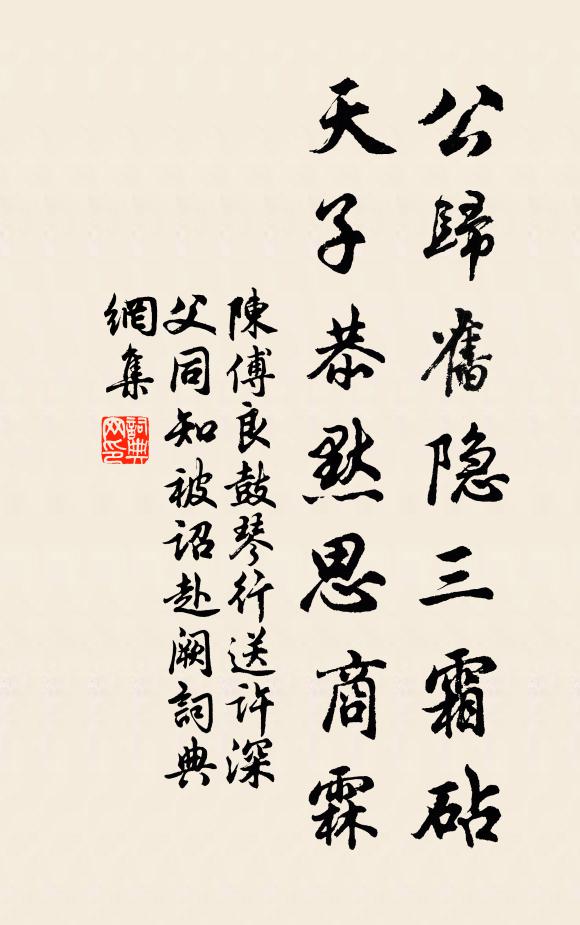 公歸舊隐三霜砧
天子恭默思商霖
陳傅良鼓琴行送许深
父同知被诏赴阙詞典
網集
詞典網印